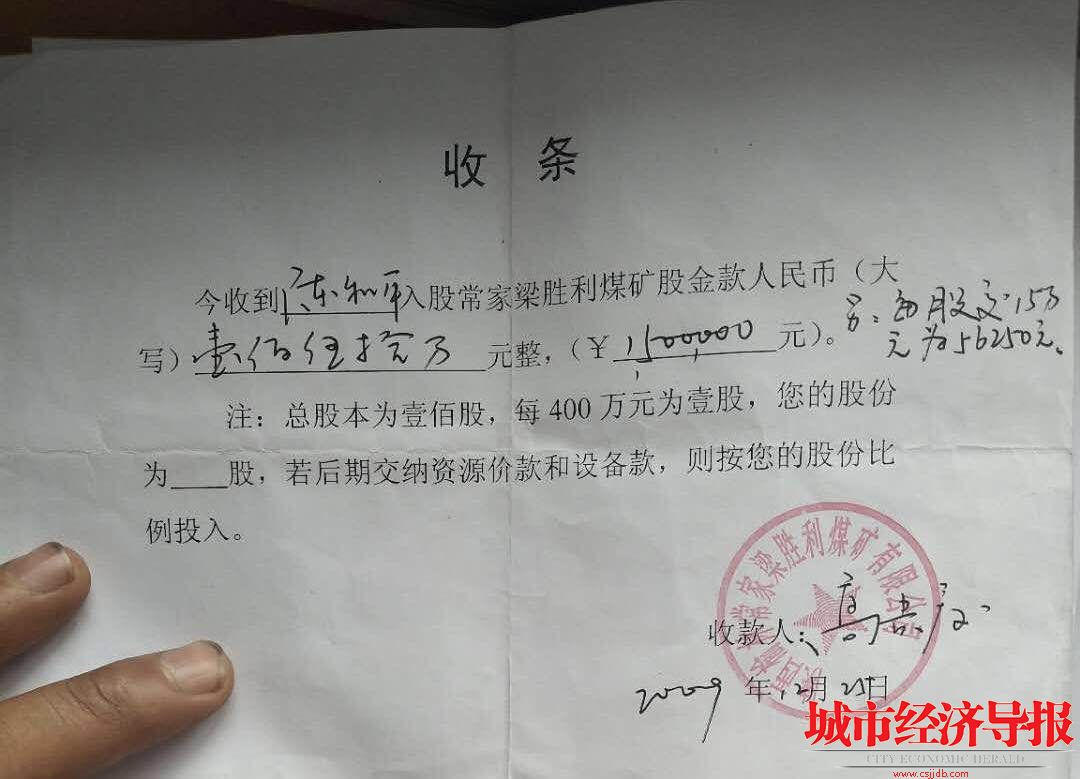 收 条
今收到陈和平入股常家梁胜利煤矿股金款人民币（大
写）壹佰伍拾万元整，（￥1500000元）。
另：每股交15万
元为56250元。
注：总股本为壹佰股，每400万元为壹股，您的股份
为____股，若后期交纳资源价款和设备款，则按您的股份比
例投入。
常家梁胜利煤矿有限公
收款人：高
2009年12月25日
城市经济导报
CITY ECONOMIC HERALD
www.csjjdb.com